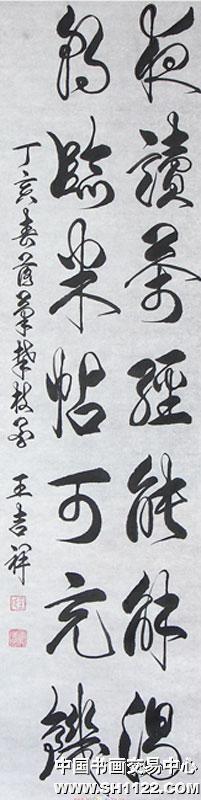 夜讀茶經能解渴
朝臨米帖可充饑
丁亥春
王吉祥
中国书画交易中心
www.SH1122.com